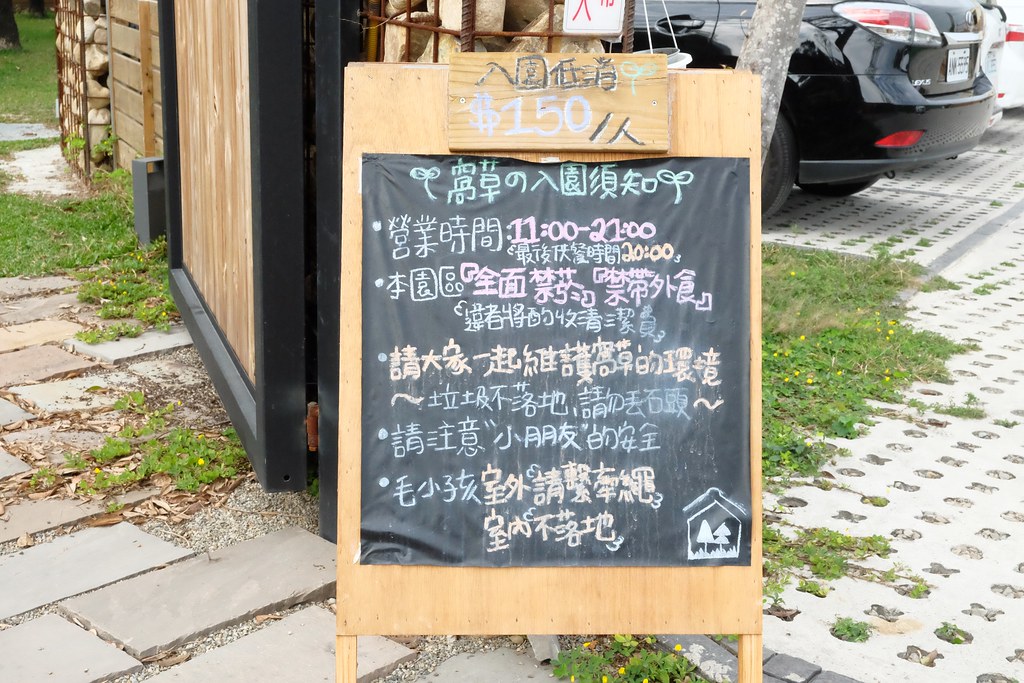 入園低消
$150/人
窩草の入園須知
•營業時間:11:00-21:00
最後供餐時間20:00
•本園區『全面禁菸』『禁帶外食』
違者將酌收清潔費
•請大家一起維護窩草的環境
～垃圾不落地、請勿丟石頭～
•請注意"小朋友"的安全
•毛小孩室外請繫牽繩
室內不落地
LEXUS